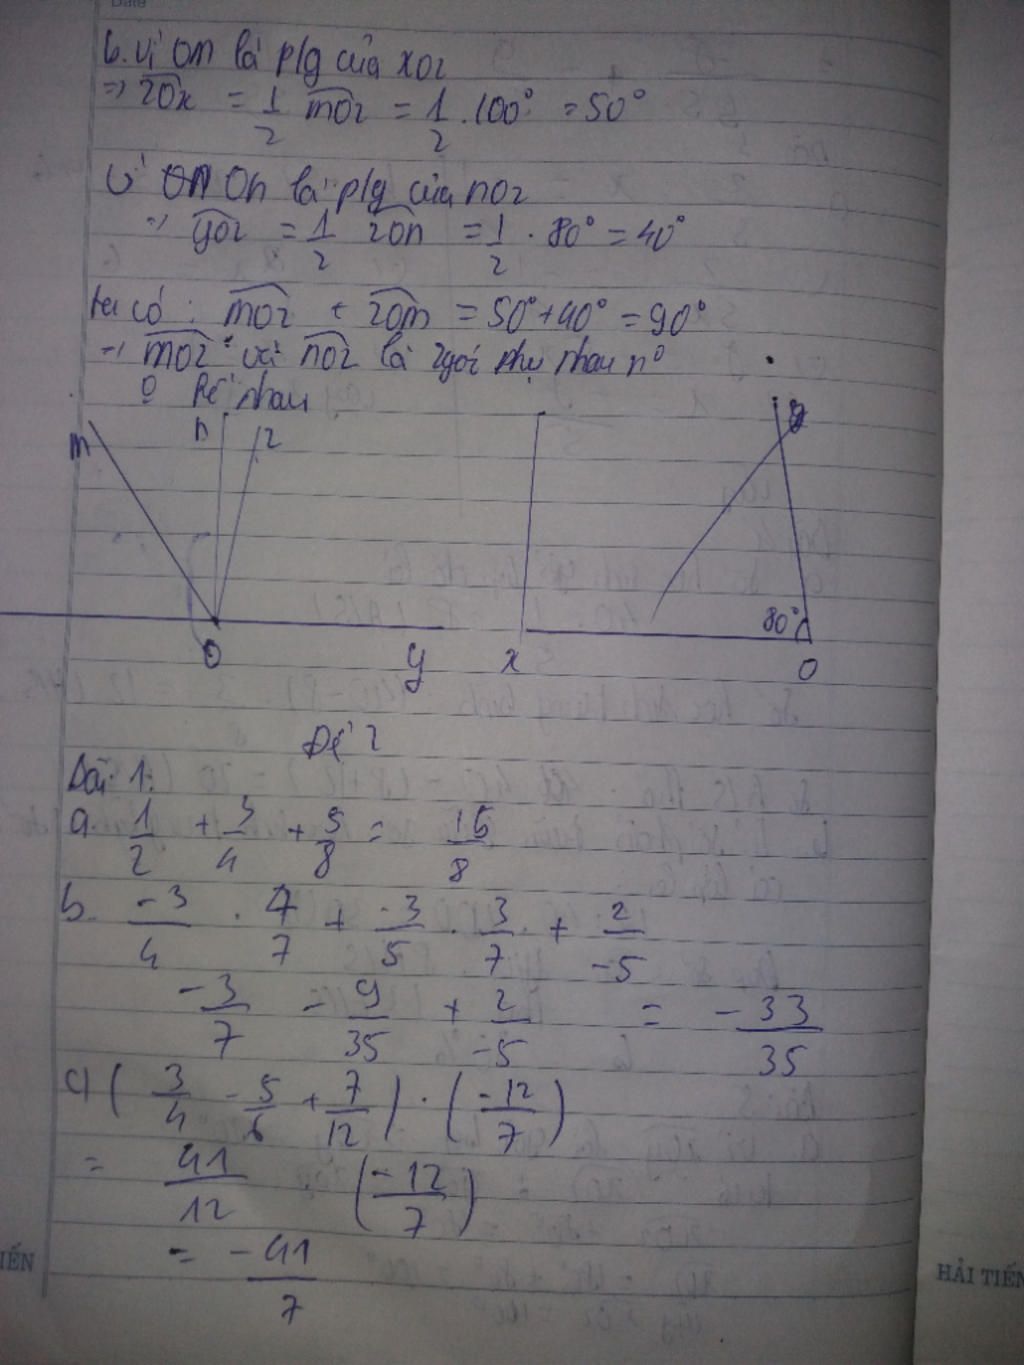 Date
b. vì Om là p/g của xoz
=> zOx = 1/2 moz = 1/2 . 100° = 50°
Vì On là p/g của noz
=> yoz = 1/2 zon = 1/2 . 80° = 40°
ta có : moz + zom = 50° + 40° = 90°
=> moz và noz là 2 góc phụ nhau
kề nhau
m n z
80°
O y x O
Đề 2
Bài 1:
a. 1/2 + 3/4 + 5/8 = 15/8
b. -3/4 . 4/7 + -3/5 . 3/7 + 2/-5
-3/7 - 9/35 + 2/-5 = -33/35
c) ( 3/4 - 5/6 + 7/12 ) . ( -12/7 )
= 41/12 ( -12/7 )
= -41/7
IẾN
HẢI TIẾN